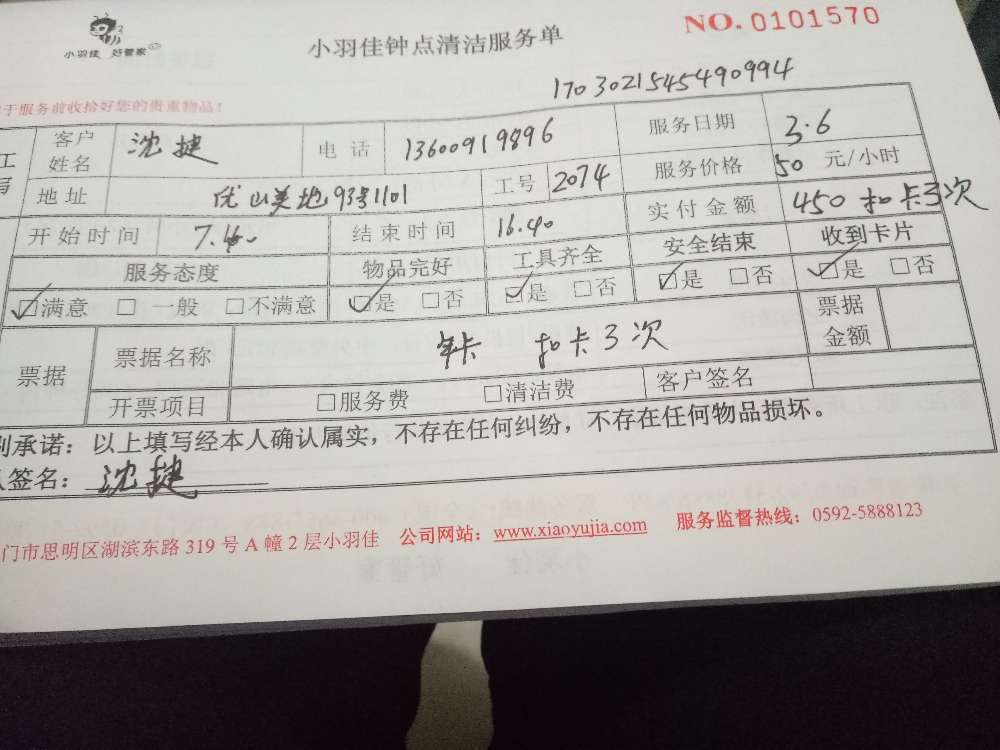 小羽佳 好管家
小羽佳钟点清洁服务单
NO. 0101570
1703021545490994
于服务前收拾好您的贵重物品！
客户姓名 沈捷 电话 13600919896 服务日期 3.6
地址 优山美地93号1101 工号 2074 服务价格 50 元/小时
开始时间 7.40 结束时间 16.40 实付金额 450 扣卡3次
服务态度 物品完好 工具齐全 安全结束 收到卡片
☑满意 □一般 □不满意 ☑是 □否 ☑是 □否 ☑是 □否 ☑是 □否
票据 票据名称 年卡 扣卡3次 票据金额
开票项目 □服务费 □清洁费 客户签名
承诺：以上填写经本人确认属实，不存在任何纠纷，不存在任何物品损坏。
签名：沈捷
门市思明区湖滨东路 319 号 A 幢 2 层小羽佳 公司网站：www.xiaoyujia.com 服务监督热线：0592-5888123